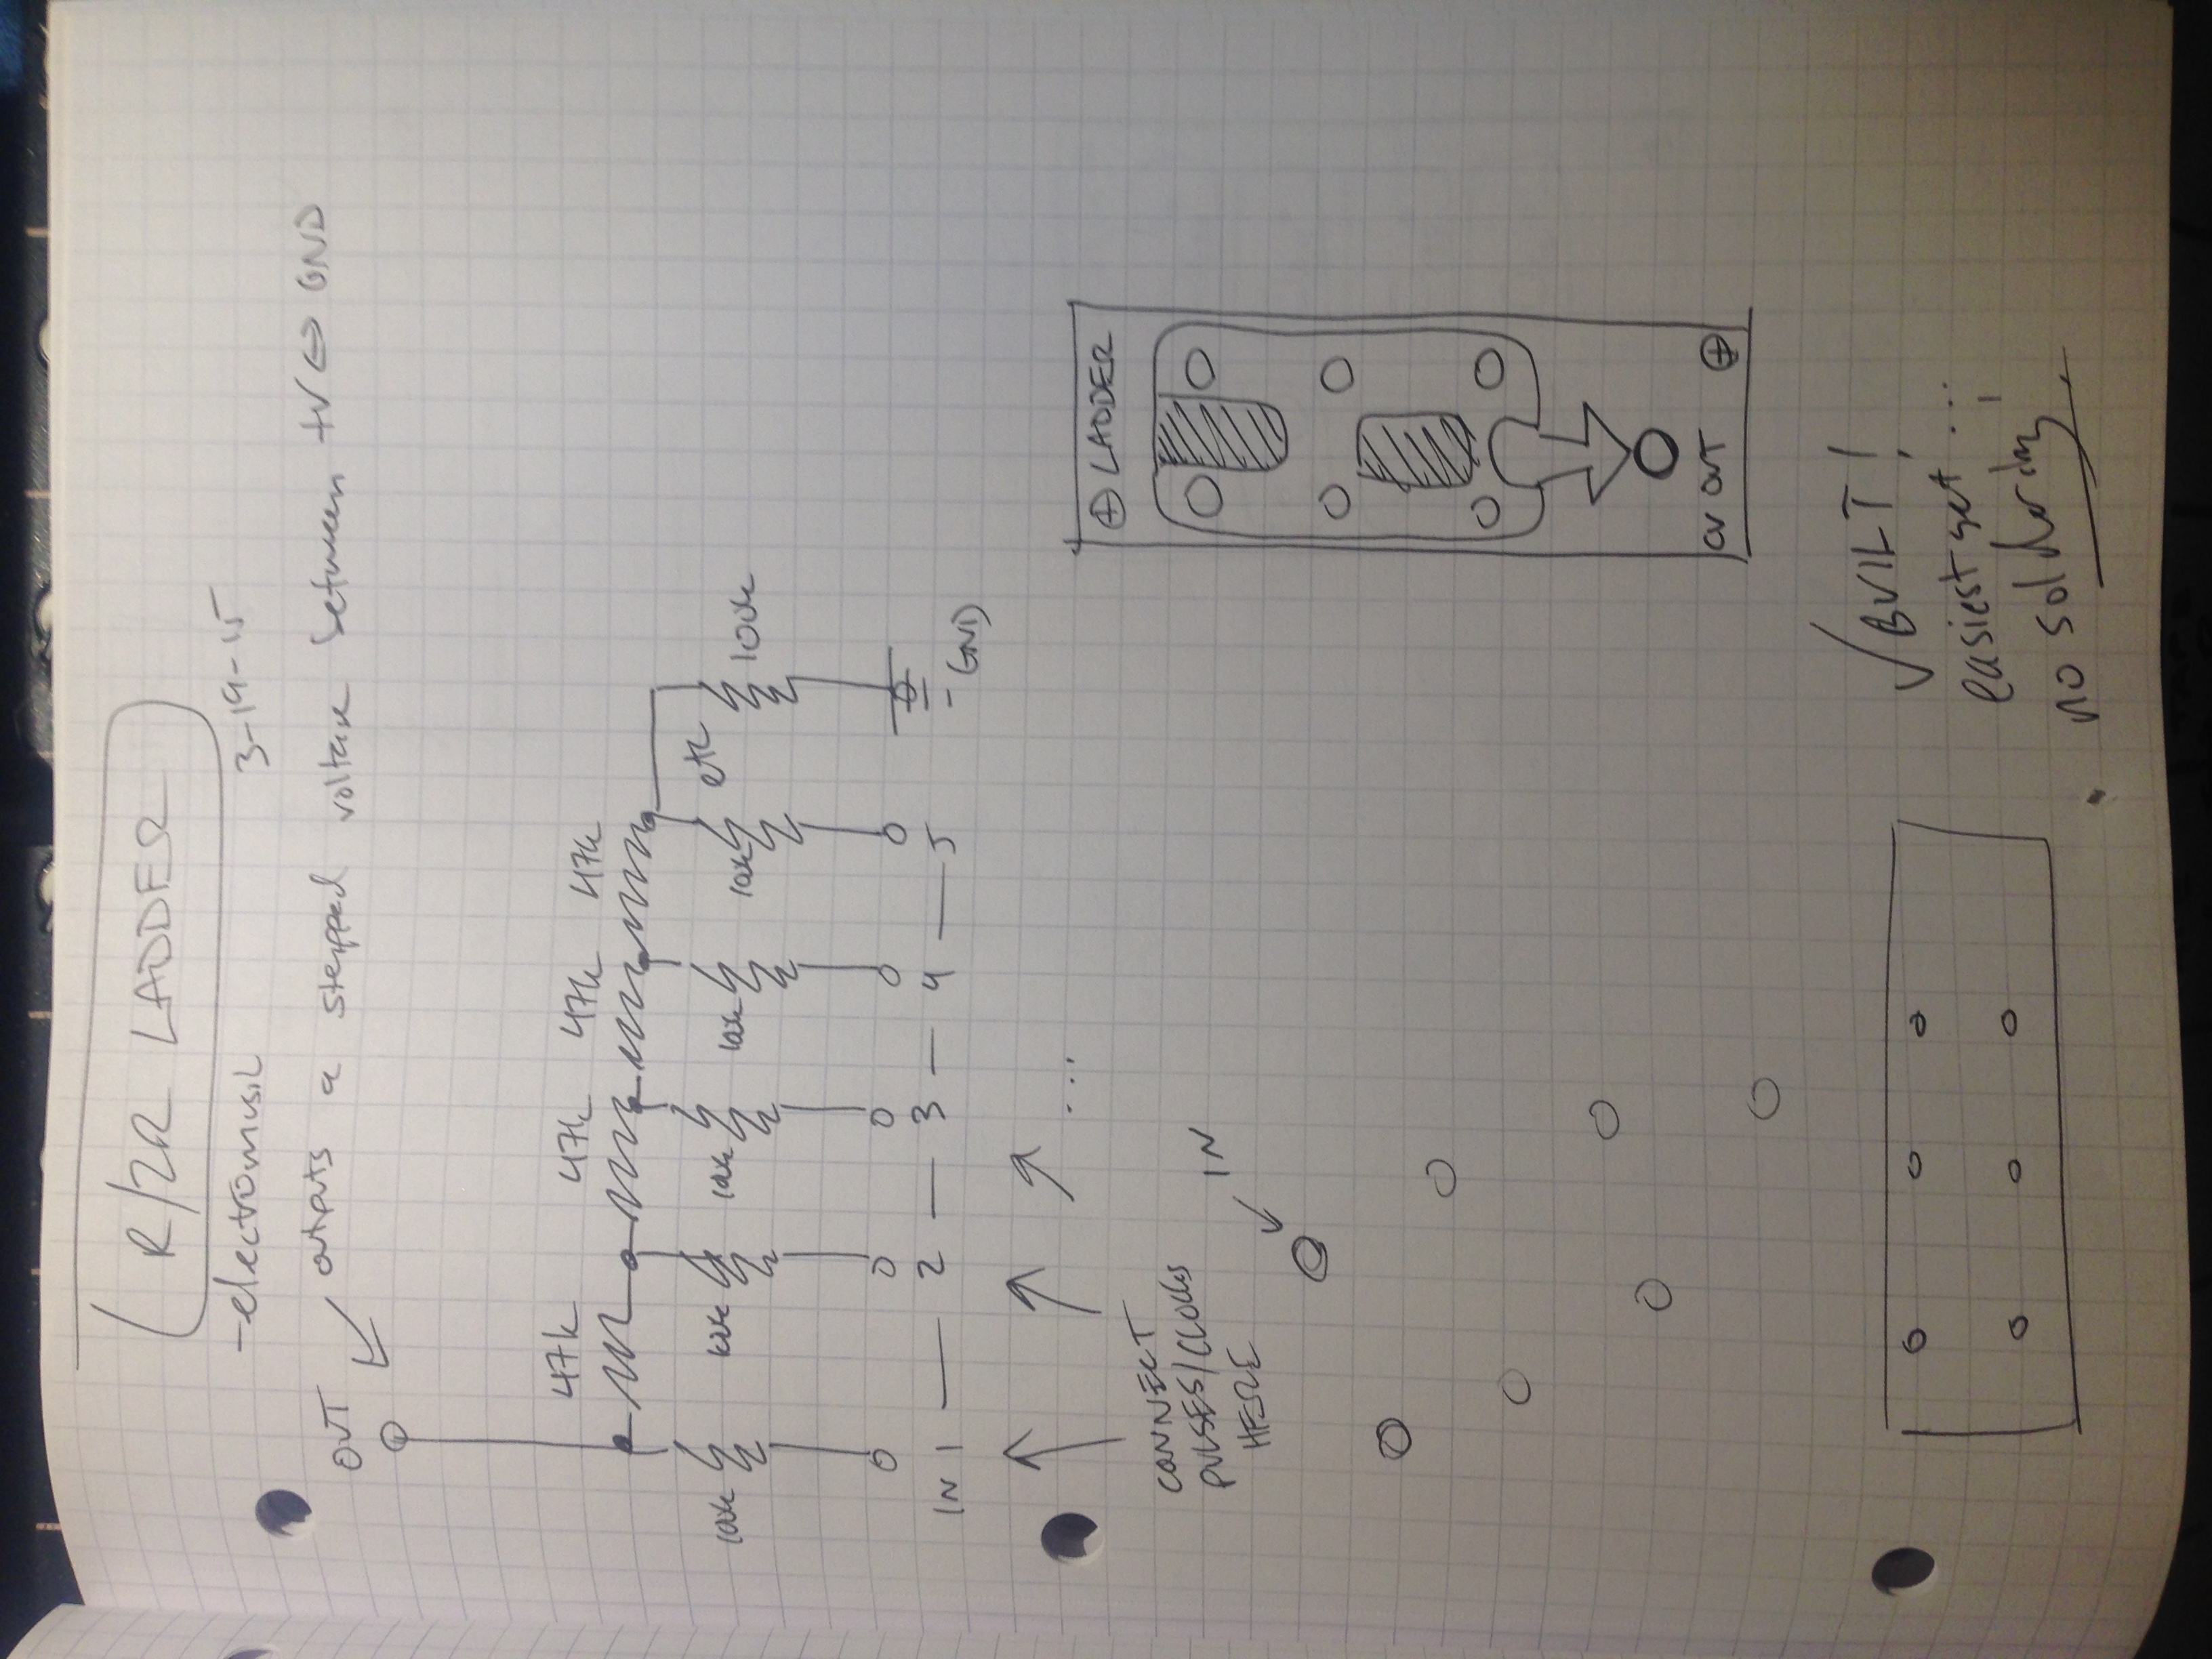 R/2R LADDER
-electromusic
3-19-15
OUT
outputs a stepped voltage between +V ⇔ GND
47k 47k 47k 47k
100k 100k 100k 100k 100k etc 100k
IN 1 — 2 — 3 — 4 — 5
GND
...
CONNECT
PULSES/CLOCKS
HERE
IN
LADDER
CV OUT
✓BUILT!
easiest yet ...
no soldering!